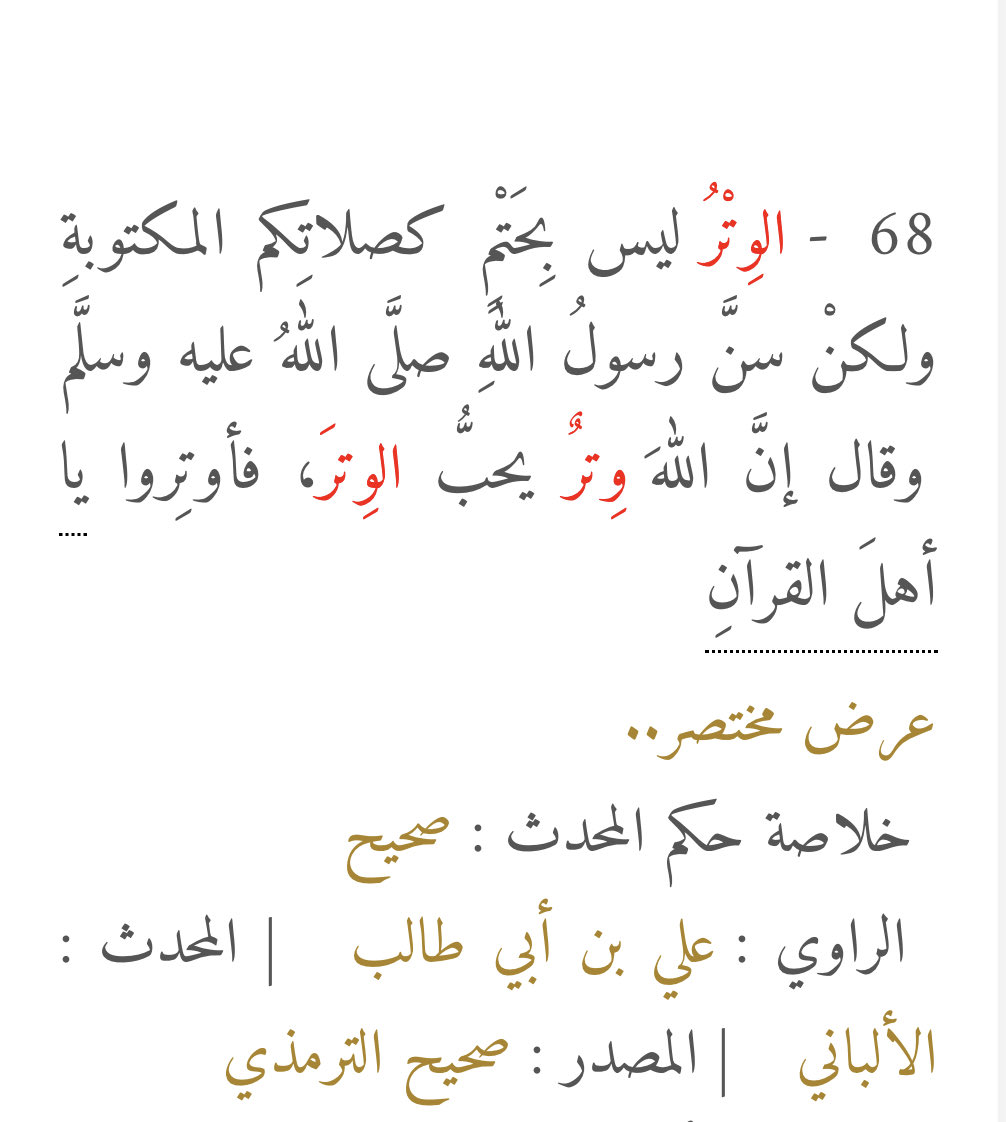 68 - الوِتْرُ ليس بِحَتْمٍ كصلاتِكم المكتوبةِ
ولكنْ سنَّ رسولُ اللَّهِ صلَّى اللَّهُ عليه وسلَّم
وقال إنَّ اللَّهَ وِترٌ يحبُّ الوِترَ، فأوتِروا يا
أهلَ القرآنِ
عرض مختصر..
خلاصة حكم المحدث : صحيح
الراوي : علي بن أبي طالب | المحدث :
الألباني | المصدر : صحيح الترمذي